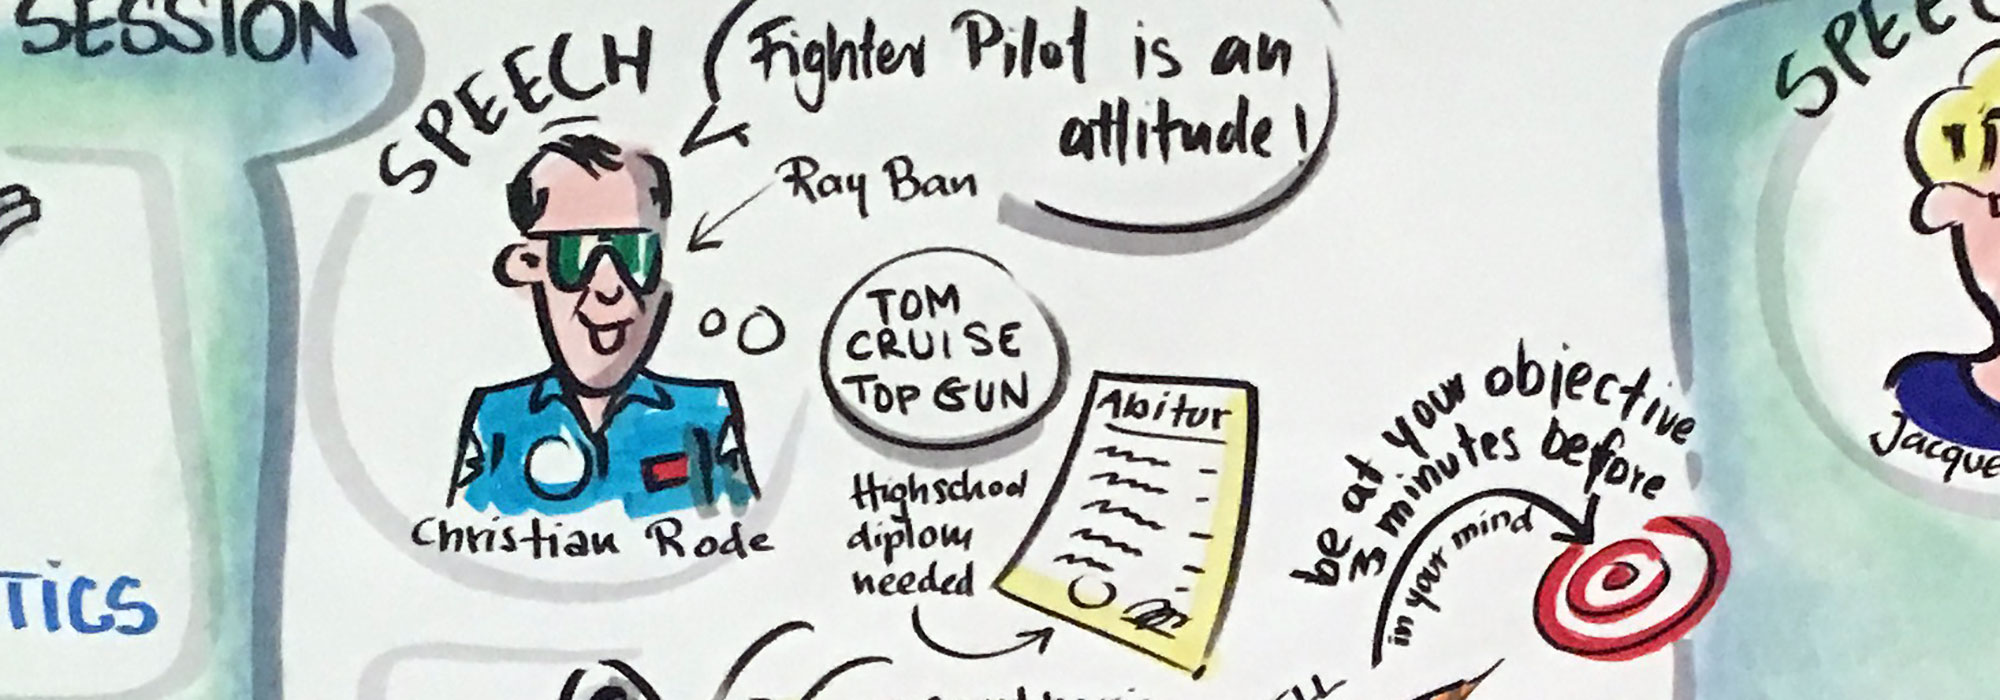 SESSION
SPEECH
Fighter Pilot is an
attitude!
Ray Ban
TOM
CRUISE
TOP GUN
Christian Rode
Highschool
diplom
needed
Abitur
be at your objective
3 minutes before
in your mind
TICS
Jacque